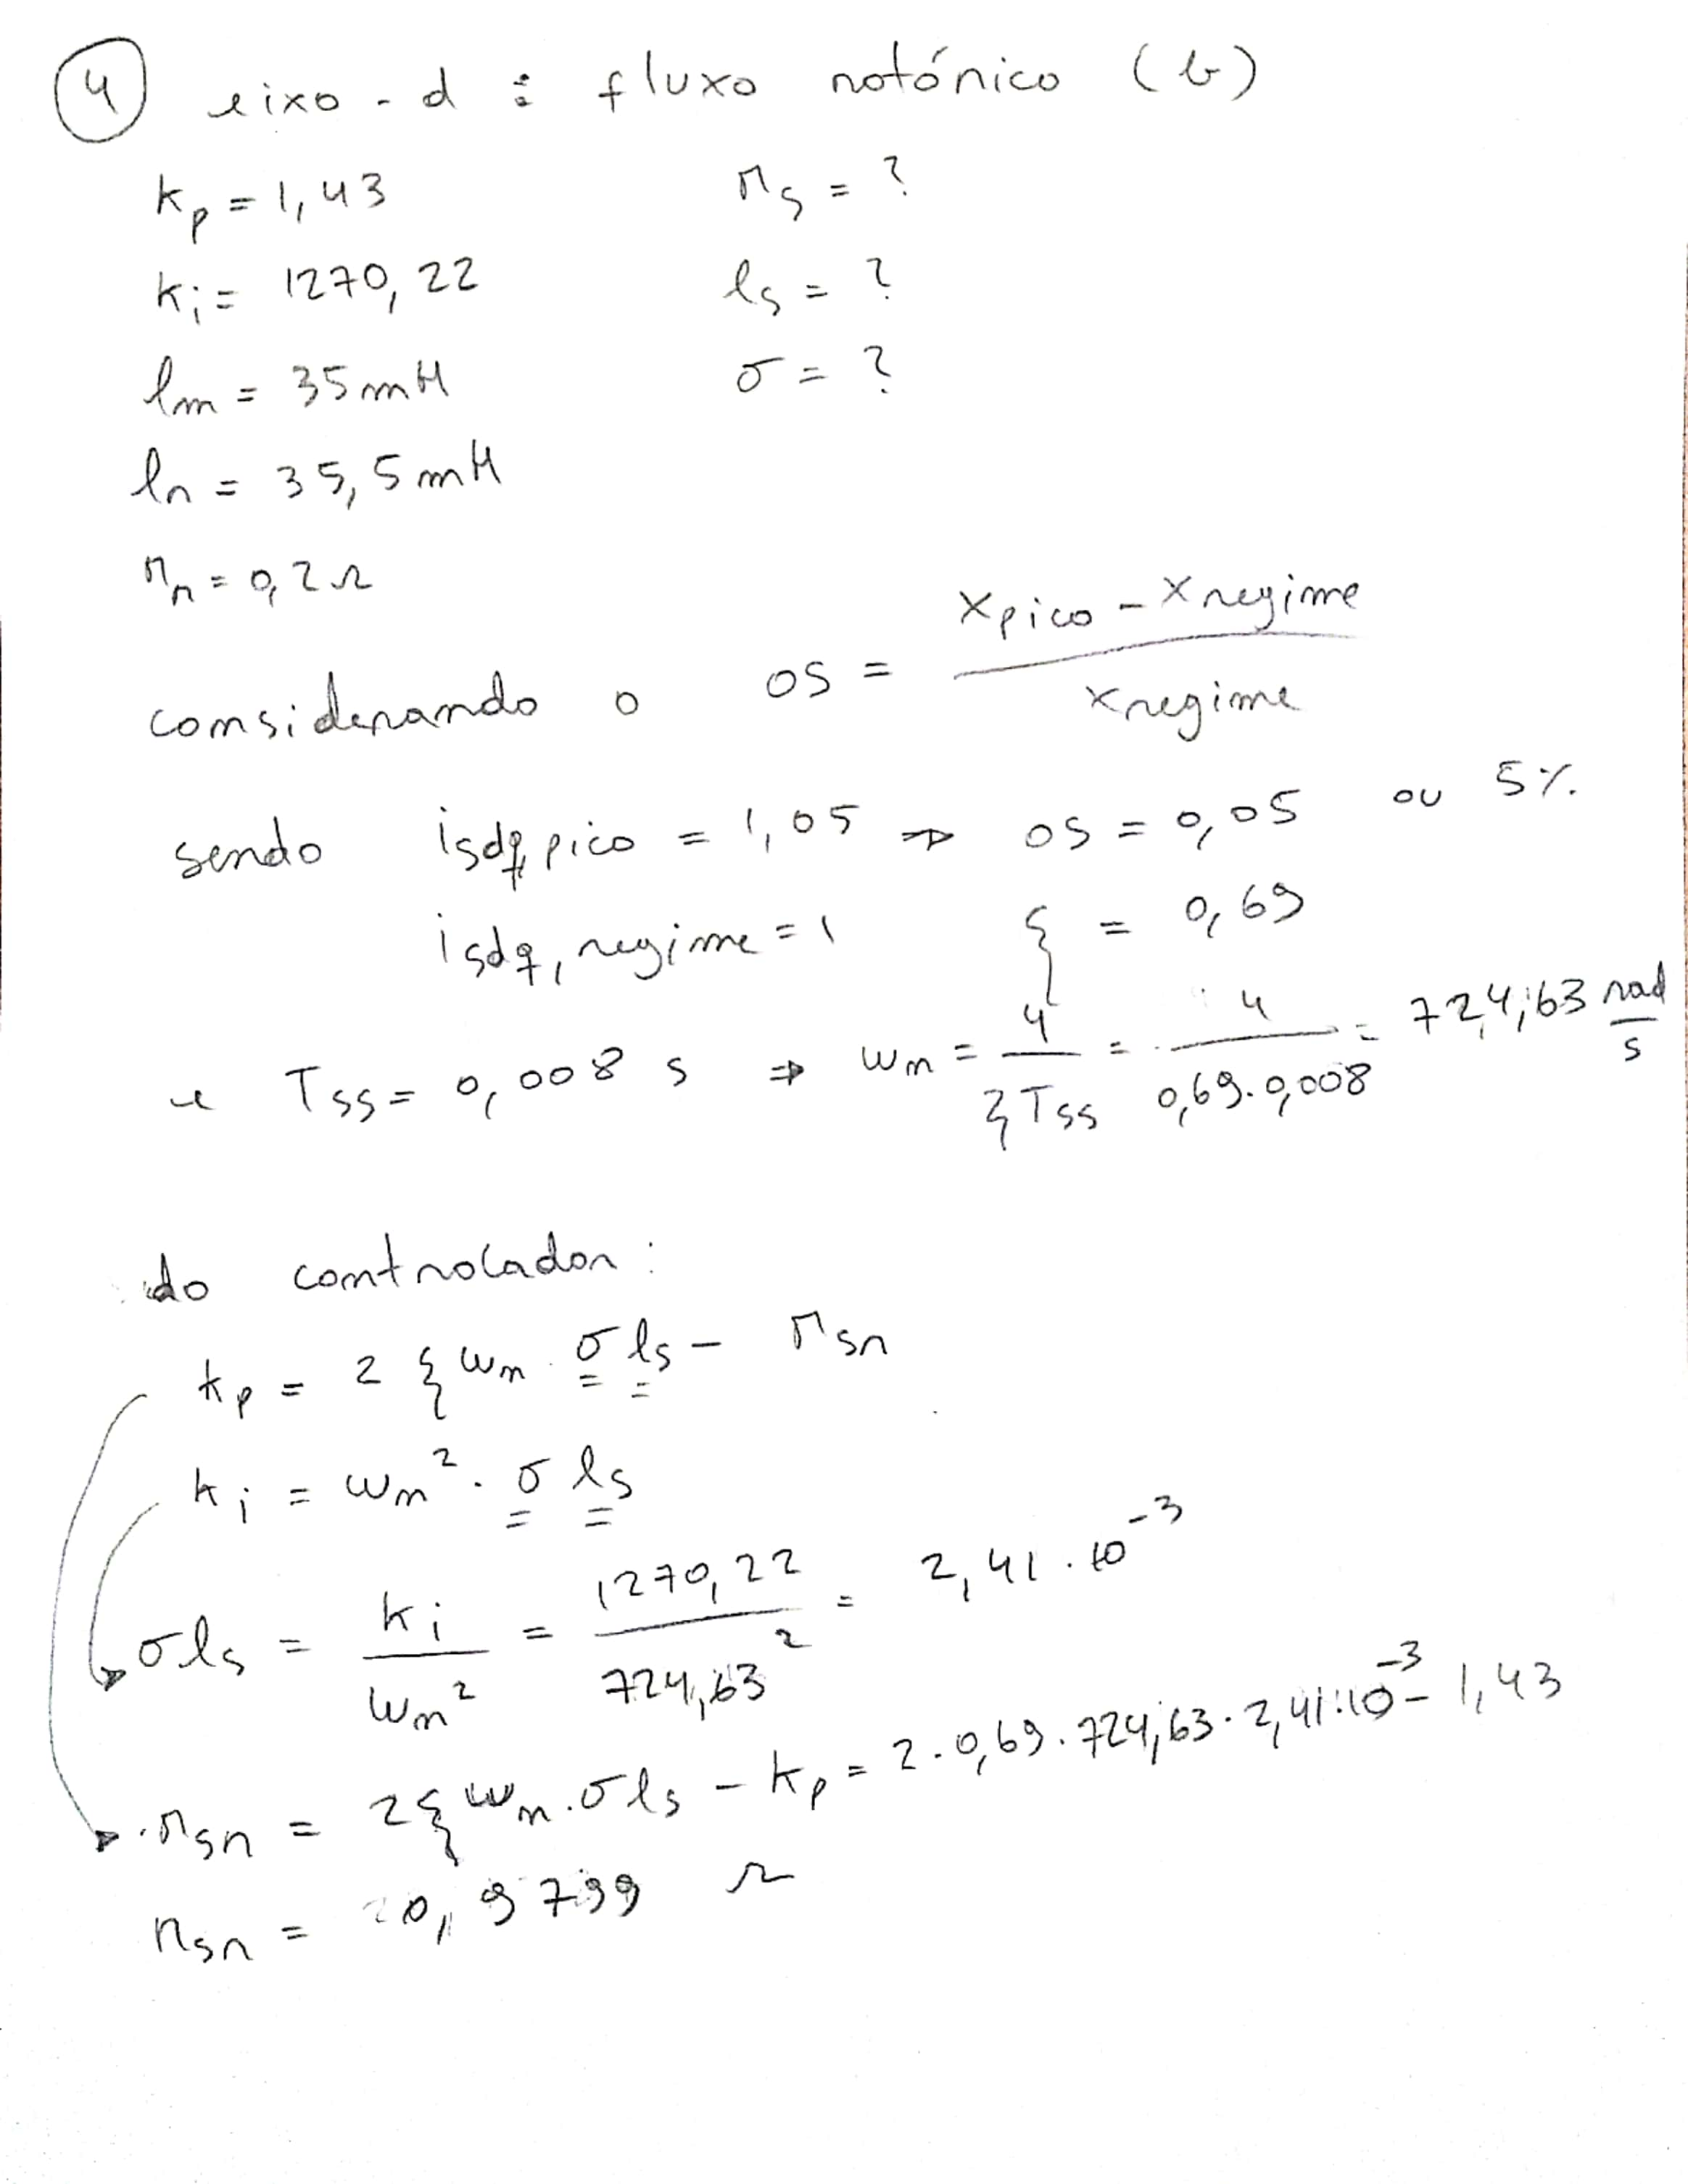 4 eixo-d : fluxo rotórico (b)
kp = 1,43 rs = ?
ki = 1270,22 ls = ?
lm = 35mH σ = ?
lr = 35,5mH
rr = 0,2Ω
considerando o OS = (xpico - xregime) / xregime
sendo isdq,pico = 1,05 ⇒ OS = 0,05 ou 5%
isdq,regime = 1 ξ = 0,69
e Tss = 0,008 s ⇒ ωn = 4/(ξTss) = 4/(0,69.0,008) = 724,63 rad/s
do controlador:
kp = 2ξωn.σls - rsr
ki = ωn².σls
σls = ki/ωn² = 1270,22/724,63² = 2,41.10⁻³
rsr = 2ξωn.σls - kp = 2.0,69.724,63.2,41.10⁻³ - 1,43
rsr = 0,9799 Ω